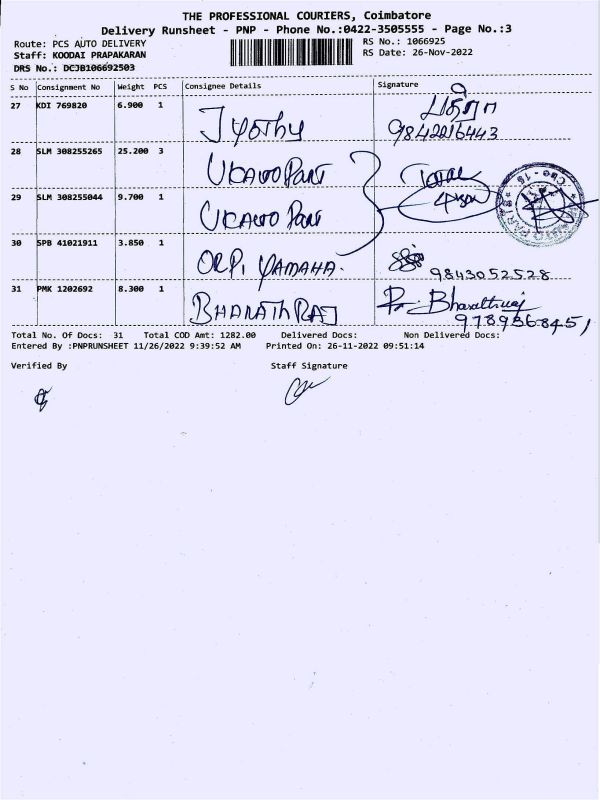 THE PROFESSIONAL COURIERS, Coimbatore
Delivery Runsheet - PNP - Phone No.:0422-3505555 - Page No.:3
Route: PCS AUTO DELIVERY RS No.: 1066925
Staff: KOODAI PRAPAKARAN RS Date: 26-Nov-2022
DRS No.: DCJB106692503
S No Consignment No Weight PCS Consignee Details Signature
27 KDI 769820 6.900 1 Jyothy
9842016443
28 SLM 308255265 25.200 3 Total
29 SLM 308255044 9.700 1
30 SPB 41021911 3.850 1 ORPI YAMAHA.
9843052528
31 PMK 1202692 8.300 1 BHARATH RAJ Bharathraj
Total No. Of Docs: 31 Total COD Amt: 1282.00 Delivered Docs: Non Delivered Docs:
Entered By :PNPRUNSHEET 11/26/2022 9:39:52 AM Printed On: 26-11-2022 09:51:14
Verified By Staff Signature